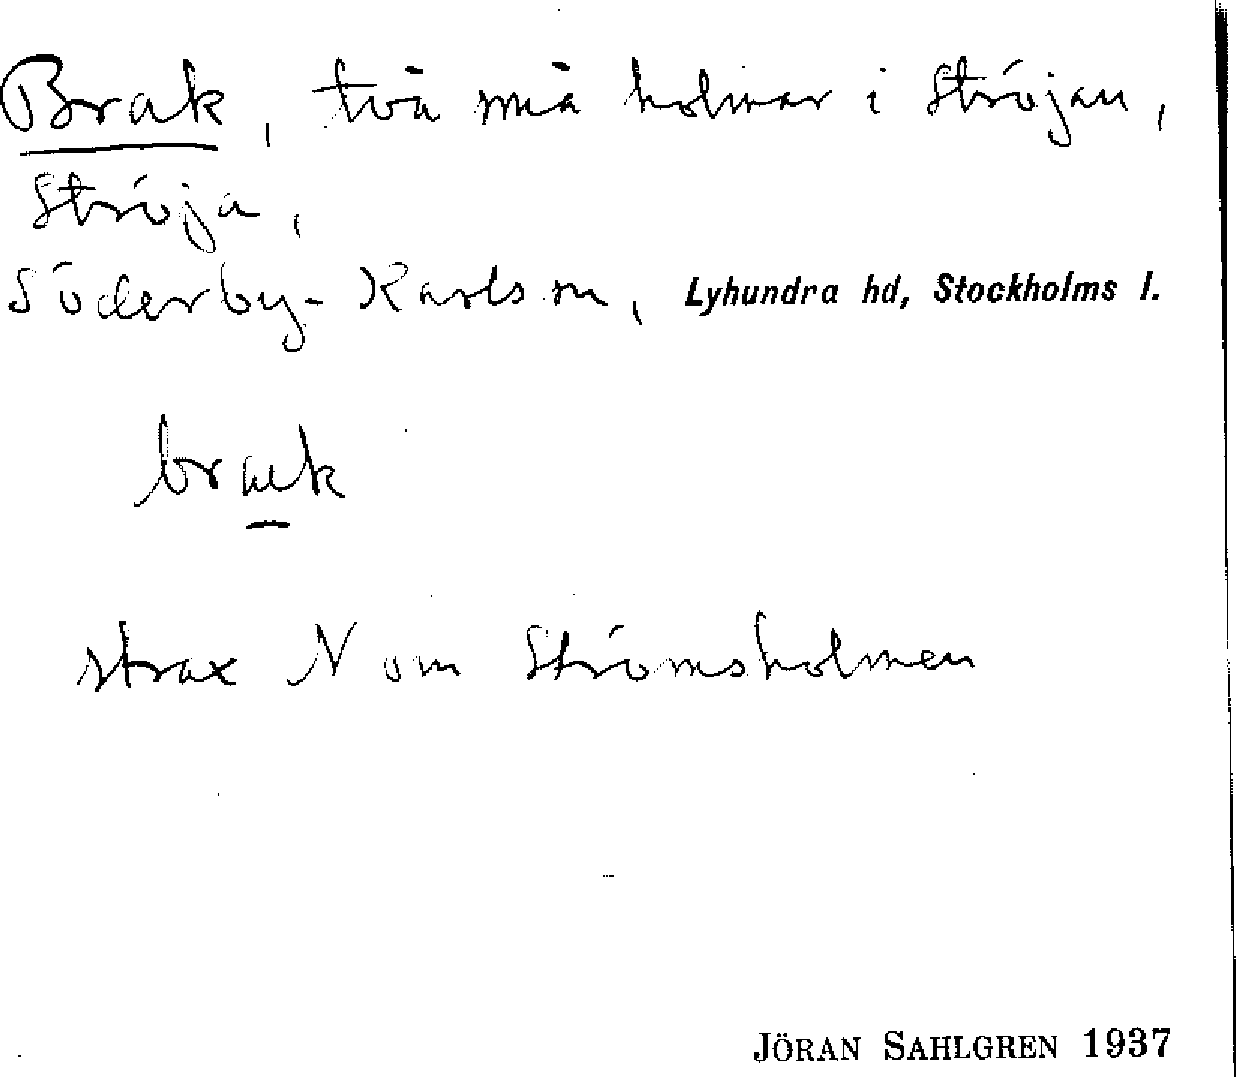 Brak, två små holmar i Ströjan,
Ströja,
Söderby-Karlsson, Lyhundra hd, Stockholms l.
strax N om Strömsholmen
JÖRAN SAHLGREN 1937